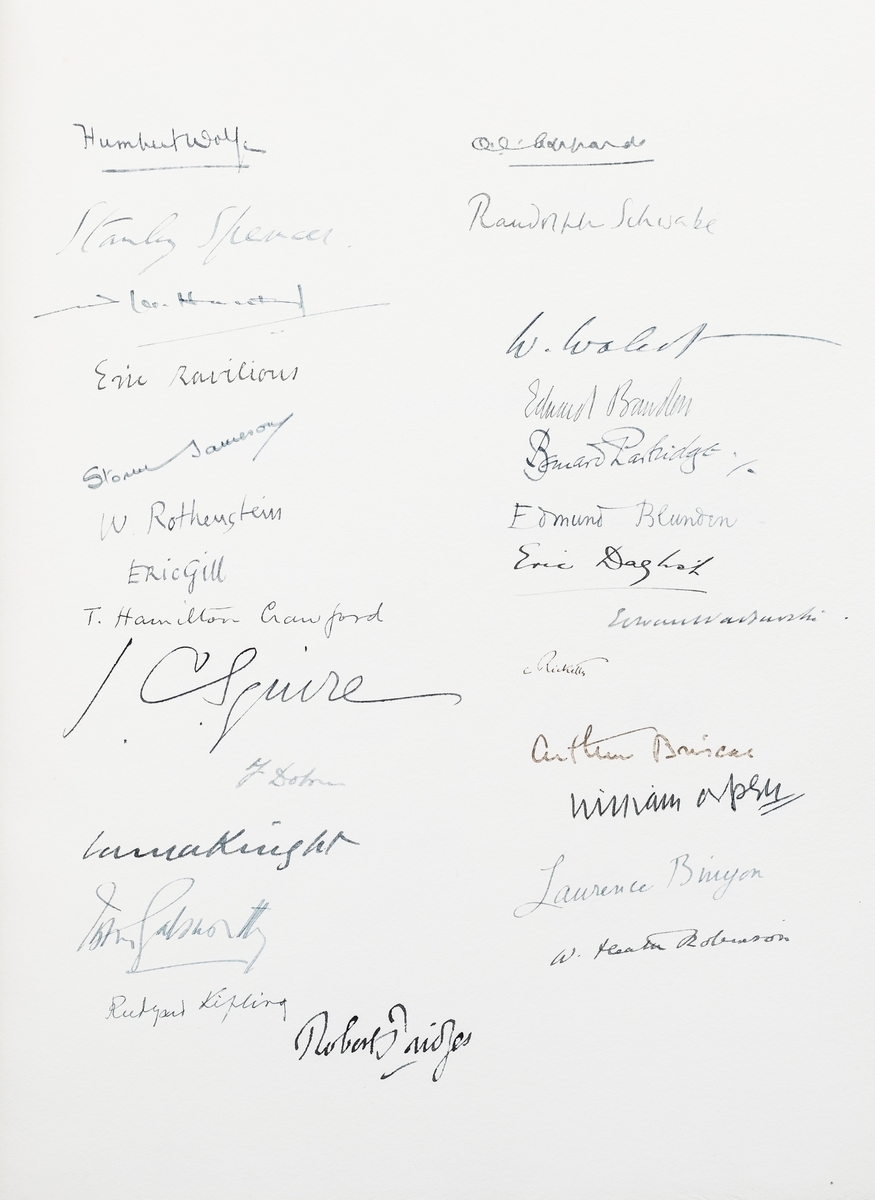 Humbert Wolfe
Stanley Spencer.
Eric Ravilious
Storm Jameson
W Rothenstein
Eric Gill
T. Hamilton Crawford
J C Squire
F Dobson
Laura Knight
John Galsworthy
Rudyard Kipling
Robert Bridges
Randolph Schwabe
W. Walcot
Edward Bawden
Bernard Partridge.
Edmund Blunden
Eric Daglish
C Ricketts
Arthur Briscoe
William Orpen
Laurence Binyon
W. Heath Robinson